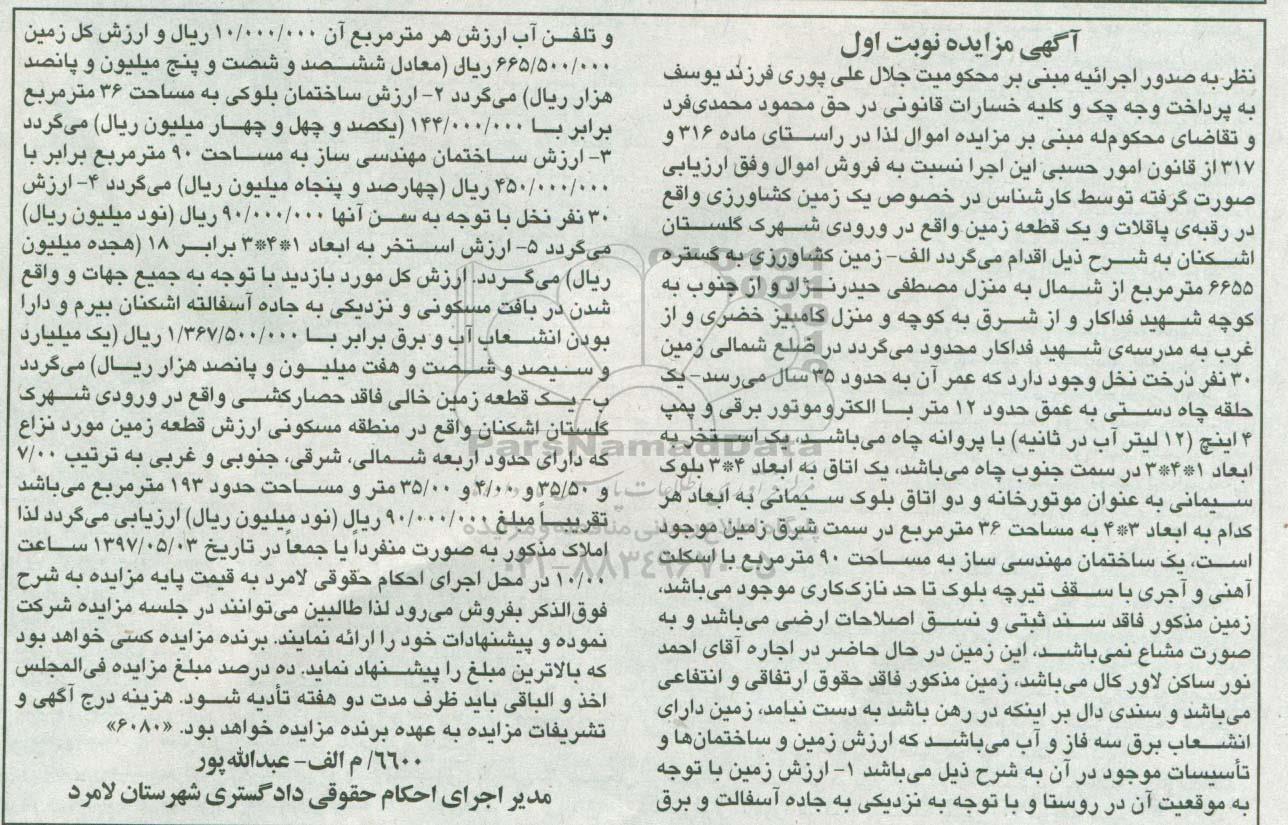 آگهی مزایده نوبت اول
نظر به صدور اجرائیه مبنی بر محکومیت جلال علی پوری فرزند یوسف
به پرداخت وجه چک و کلیه خسارات قانونی در حق محمود محمدی‌فرد
و تقاضای محکوم‌له مبنی بر مزایده اموال لذا در راستای ماده ۳۱۶ و
۳۱۷ از قانون امور حسبی این اجرا نسبت به فروش اموال وفق ارزیابی
صورت گرفته توسط کارشناس در خصوص یک زمین کشاورزی واقع
در رقبه‌ی پاقلات و یک قطعه زمین واقع در ورودی شهرک گلستان
اشکنان به شرح ذیل اقدام می‌گردد الف- زمین کشاورزی به گستره
۶۶۵۵ مترمربع از شمال به منزل مصطفی حیدرنژاد و از جنوب به
کوچه شهید فداکار و از شرق به کوچه و منزل کامبیز خضری و از
غرب به مدرسه‌ی شهید فداکار محدود می‌گردد در ضلع شمالی زمین
۳۰ نفر درخت نخل وجود دارد که عمر آن به حدود ۳۵ سال می‌رسد- یک
حلقه چاه دستی به عمق حدود ۱۲ متر با الکتروموتور برقی و پمپ
۴ اینچ (۱۲ لیتر آب در ثانیه) با پروانه چاه می‌باشد، یک استخر به
ابعاد ۱*۴*۳ در سمت جنوب چاه می‌باشد، یک اتاق به ابعاد ۴*۳ بلوک
سیمانی به عنوان موتورخانه و دو اتاق بلوک سیمانی به ابعاد هر
کدام به ابعاد ۳*۴ به مساحت ۳۶ مترمربع در سمت شرق زمین موجود
است، یک ساختمان مهندسی ساز به مساحت ۹۰ مترمربع با اسکلت
آهنی و آجری با سقف تیرچه بلوک تا حد نازک‌کاری موجود می‌باشد،
زمین مذکور فاقد سند ثبتی و نسق اصلاحات ارضی می‌باشد و به
صورت مشاع نمی‌باشد، این زمین در حال حاضر در اجاره آقای احمد
نور ساکن لاور کال می‌باشد، زمین مذکور فاقد حقوق ارتفاقی و انتفاعی
می‌باشد و سندی دال بر اینکه در رهن باشد به دست نیامد، زمین دارای
انشعاب برق سه فاز و آب می‌باشد که ارزش زمین و ساختمان‌ها و
تأسیسات موجود در آن به شرح ذیل می‌باشد ۱- ارزش زمین با توجه
به موقعیت آن در روستا و با توجه به نزدیکی به جاده آسفالت و برق
و تلفن آب ارزش هر مترمربع آن ۱۰/۰۰۰/۰۰۰ ریال و ارزش کل زمین
۶۶۵/۵۰۰/۰۰۰ ریال (معادل ششصد و شصت و پنج میلیون و پانصد
هزار ریال) می‌گردد ۲- ارزش ساختمان بلوکی به مساحت ۳۶ مترمربع
برابر با ۱۴۴/۰۰۰/۰۰۰ (یکصد و چهل و چهار میلیون ریال) می‌گردد
۳- ارزش ساختمان مهندسی ساز به مساحت ۹۰ مترمربع برابر با
۴۵۰/۰۰۰/۰۰۰ ریال (چهارصد و پنجاه میلیون ریال) می‌گردد ۴- ارزش
۳۰ نفر نخل با توجه به سن آنها ۹۰/۰۰۰/۰۰۰ ریال (نود میلیون ریال)
می‌گردد ۵- ارزش استخر به ابعاد ۱*۴*۳ برابر ۱۸ (هجده میلیون
ریال) می‌گردد. ارزش کل مورد بازدید با توجه به جمیع جهات و واقع
شدن در بافت مسکونی و نزدیکی به جاده آسفالته اشکنان بیرم و دارا
بودن انشعاب آب و برق برابر با ۱/۳۶۷/۵۰۰/۰۰۰ ریال (یک میلیارد
و سیصد و شصت و هفت میلیون و پانصد هزار ریال) می‌گردد
ب- یک قطعه زمین خالی فاقد حصارکشی واقع در ورودی شهرک
گلستان اشکنان واقع در منطقه مسکونی ارزش قطعه زمین مورد نزاع
که دارای حدود اربعه شمالی، شرقی، جنوبی و غربی به ترتیب ۷/۰۰
و ۳۵/۵۰ و ۴/۰۰ و ۳۵/۰۰ متر و مساحت حدود ۱۹۳ مترمربع می‌باشد
تقریباً مبلغ ۹۰/۰۰۰/۰۰۰ ریال (نود میلیون ریال) ارزیابی می‌گردد لذا
املاک مذکور به صورت منفرداً یا جمعاً در تاریخ ۱۳۹۷/۰۵/۰۳ ساعت
۱۰/۰۰ در محل اجرای احکام حقوقی لامرد به قیمت پایه مزایده به شرح
فوق‌الذکر بفروش می‌رود لذا طالبین می‌توانند در جلسه مزایده شرکت
نموده و پیشنهادات خود را ارائه نمایند. برنده مزایده کسی خواهد بود
که بالاترین مبلغ را پیشنهاد نماید. ده درصد مبلغ مزایده فی‌المجلس
اخذ و الباقی باید ظرف مدت دو هفته تأدیه شود. هزینه درج آگهی و
تشریفات مزایده به عهده برنده مزایده خواهد بود. «۶۰۸۰»
۶۶۰۰/م الف- عبدالله‌پور
مدیر اجرای احکام حقوقی دادگستری شهرستان لامرد
ParsNamadData